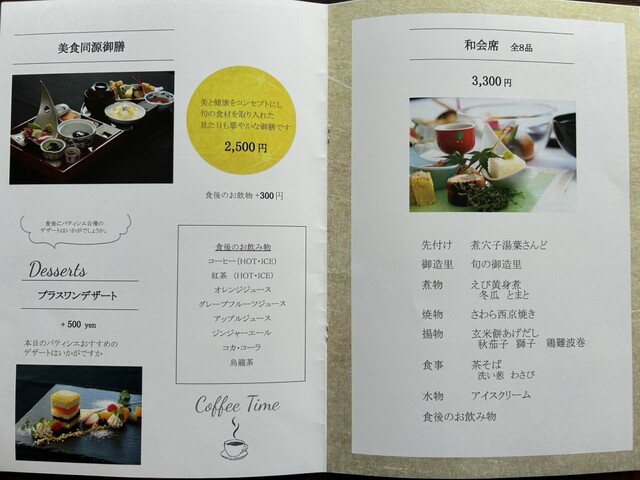 美食同源御膳
美と健康をコンセプトにし
旬の食材を取り入れた
見た目も華やかな御膳です
2,500円
食後のお飲物 +300円
食後にパティシエ自慢の
デザートはいかがでしょうか。
Desserts
プラスワンデザート
+500 yen
本日のパティシエおすすめの
デザートはいかがですか
食後のお飲み物
コーヒー(HOT・ICE)
紅茶 (HOT・ICE)
オレンジジュース
グレープフルーツジュース
アップルジュース
ジンジャーエール
コカ・コーラ
烏龍茶
Coffee Time
和会席 全8品
3,300円
先付け 煮穴子湯葉さんど
御造里 旬の御造里
煮物 えび黄身煮
冬瓜 とまと
焼物 さわら西京焼き
揚物 玄米餅あげだし
秋茄子 獅子 鶏難波巻
食事 茶そば
洗い葱 わさび
水物 アイスクリーム
食後のお飲み物